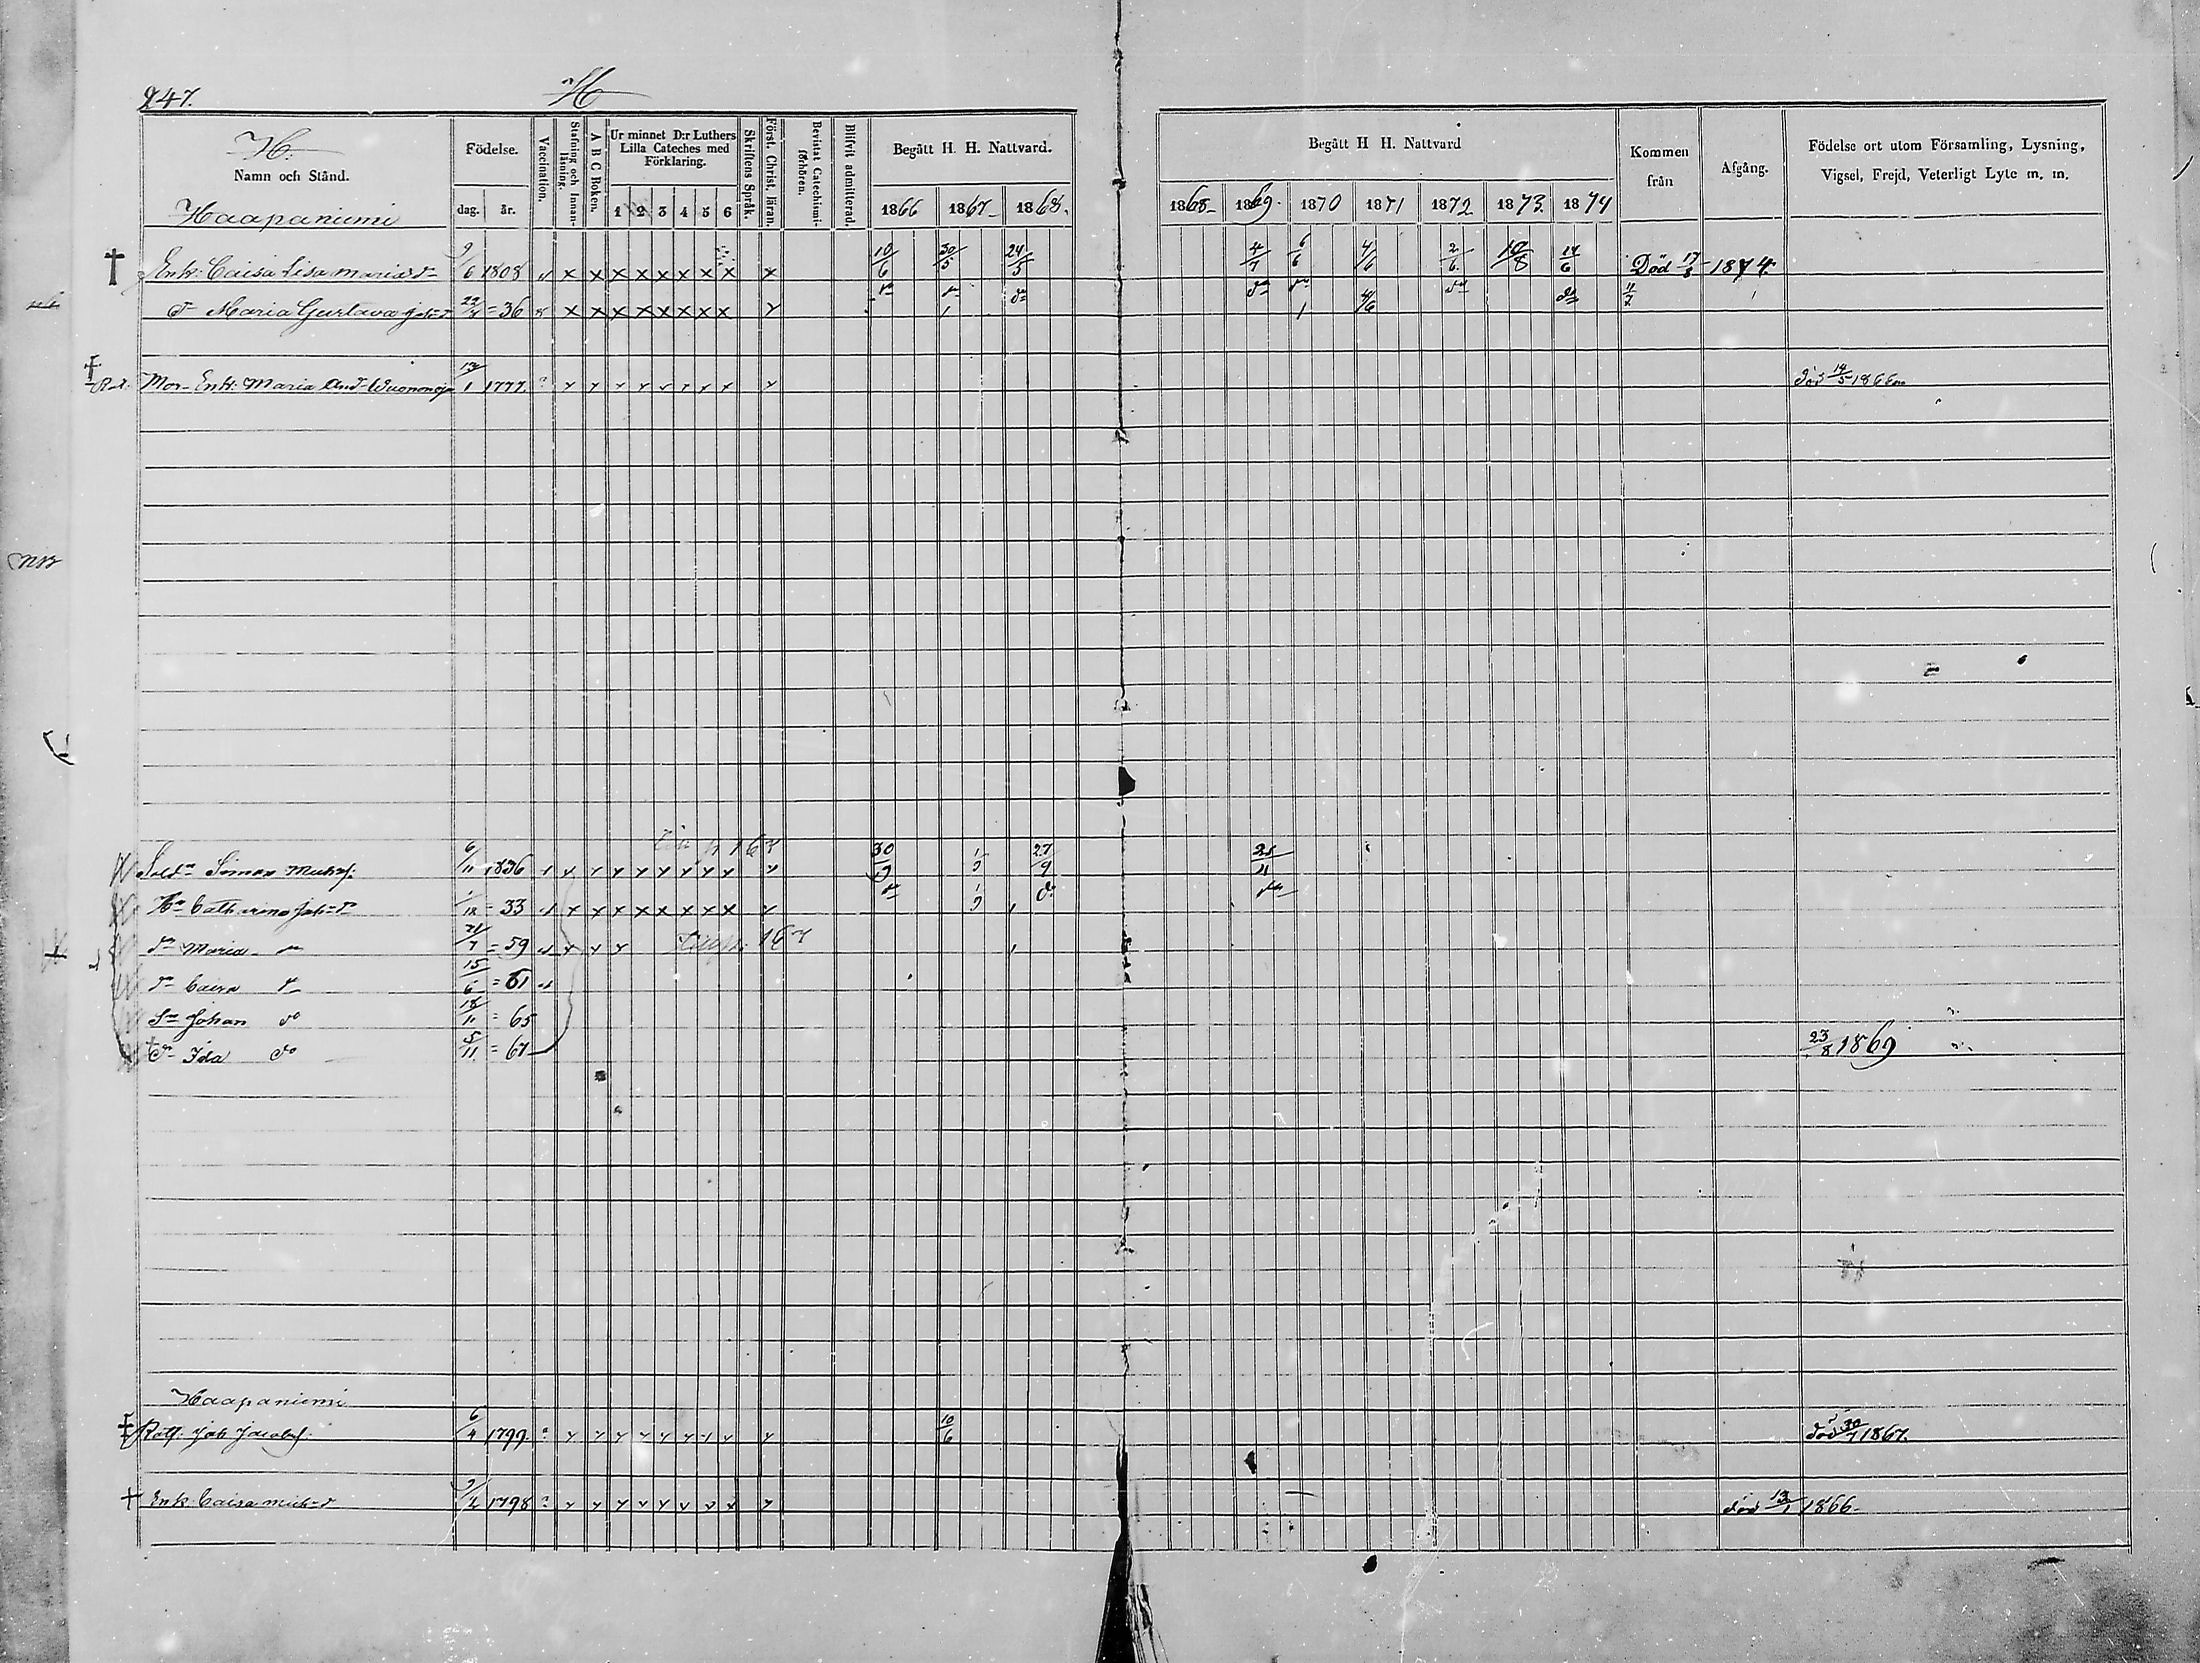 247. H
H. Födelse. Vaccination. Stafning och Innan-läsning. A B C Boken. Ur minnet D:r Luthers Lilla Cateches med Förklaring. Skriftens Språk. Först. Christ. läran. Bevistat Catechismi-förhören. Blifvit admitterad. Begått H. H. Nattvard. Begått H H. Nattvard Kommen från Afgång. Födelse ort utom Församling, Lysning, Vigsel, Frejd, Veterligt Lyte m. m.
Namn och Stånd.
Haapaniemi dag. år. 1 2 3 4 5 6 1866 1867 1868. 1868 1869. 1870 1871 1872 1873. 1874
† Enk: Caisa Lisa Mariasdr 9/6 1808 x x x x x x x x x 10/6 30/5 24/5 4/7 6/6 4/6 2/6 10/8 14/6 Död 17/8 1874
Dr Maria Gustava 22/4 = 36 x x x x x x x x 4/6
† Mor Enk: Maria And: 1 1777. ? död 14/5 1866
Sold Simon Michelss. 6/11 1836 30/9 1/9 27/9 21/11
Hu Catharina Joh:dr 1/12 = 33 x x x x x x x x 1/9 do
dr Maria 21/7 = 59 167
dr Caisa 15/6 = 61
Sn Johan do 18/11 = 65
† dr Ida do 5/11 = 67 23/8 1869
Haapaniemi
† Rotf. Joh Jacobss. 6/4 1799 ? 10/6 död 30/7 1867.
† Enk: Caisa Mich:dr 9/4 1798 ? död 13/1 1866